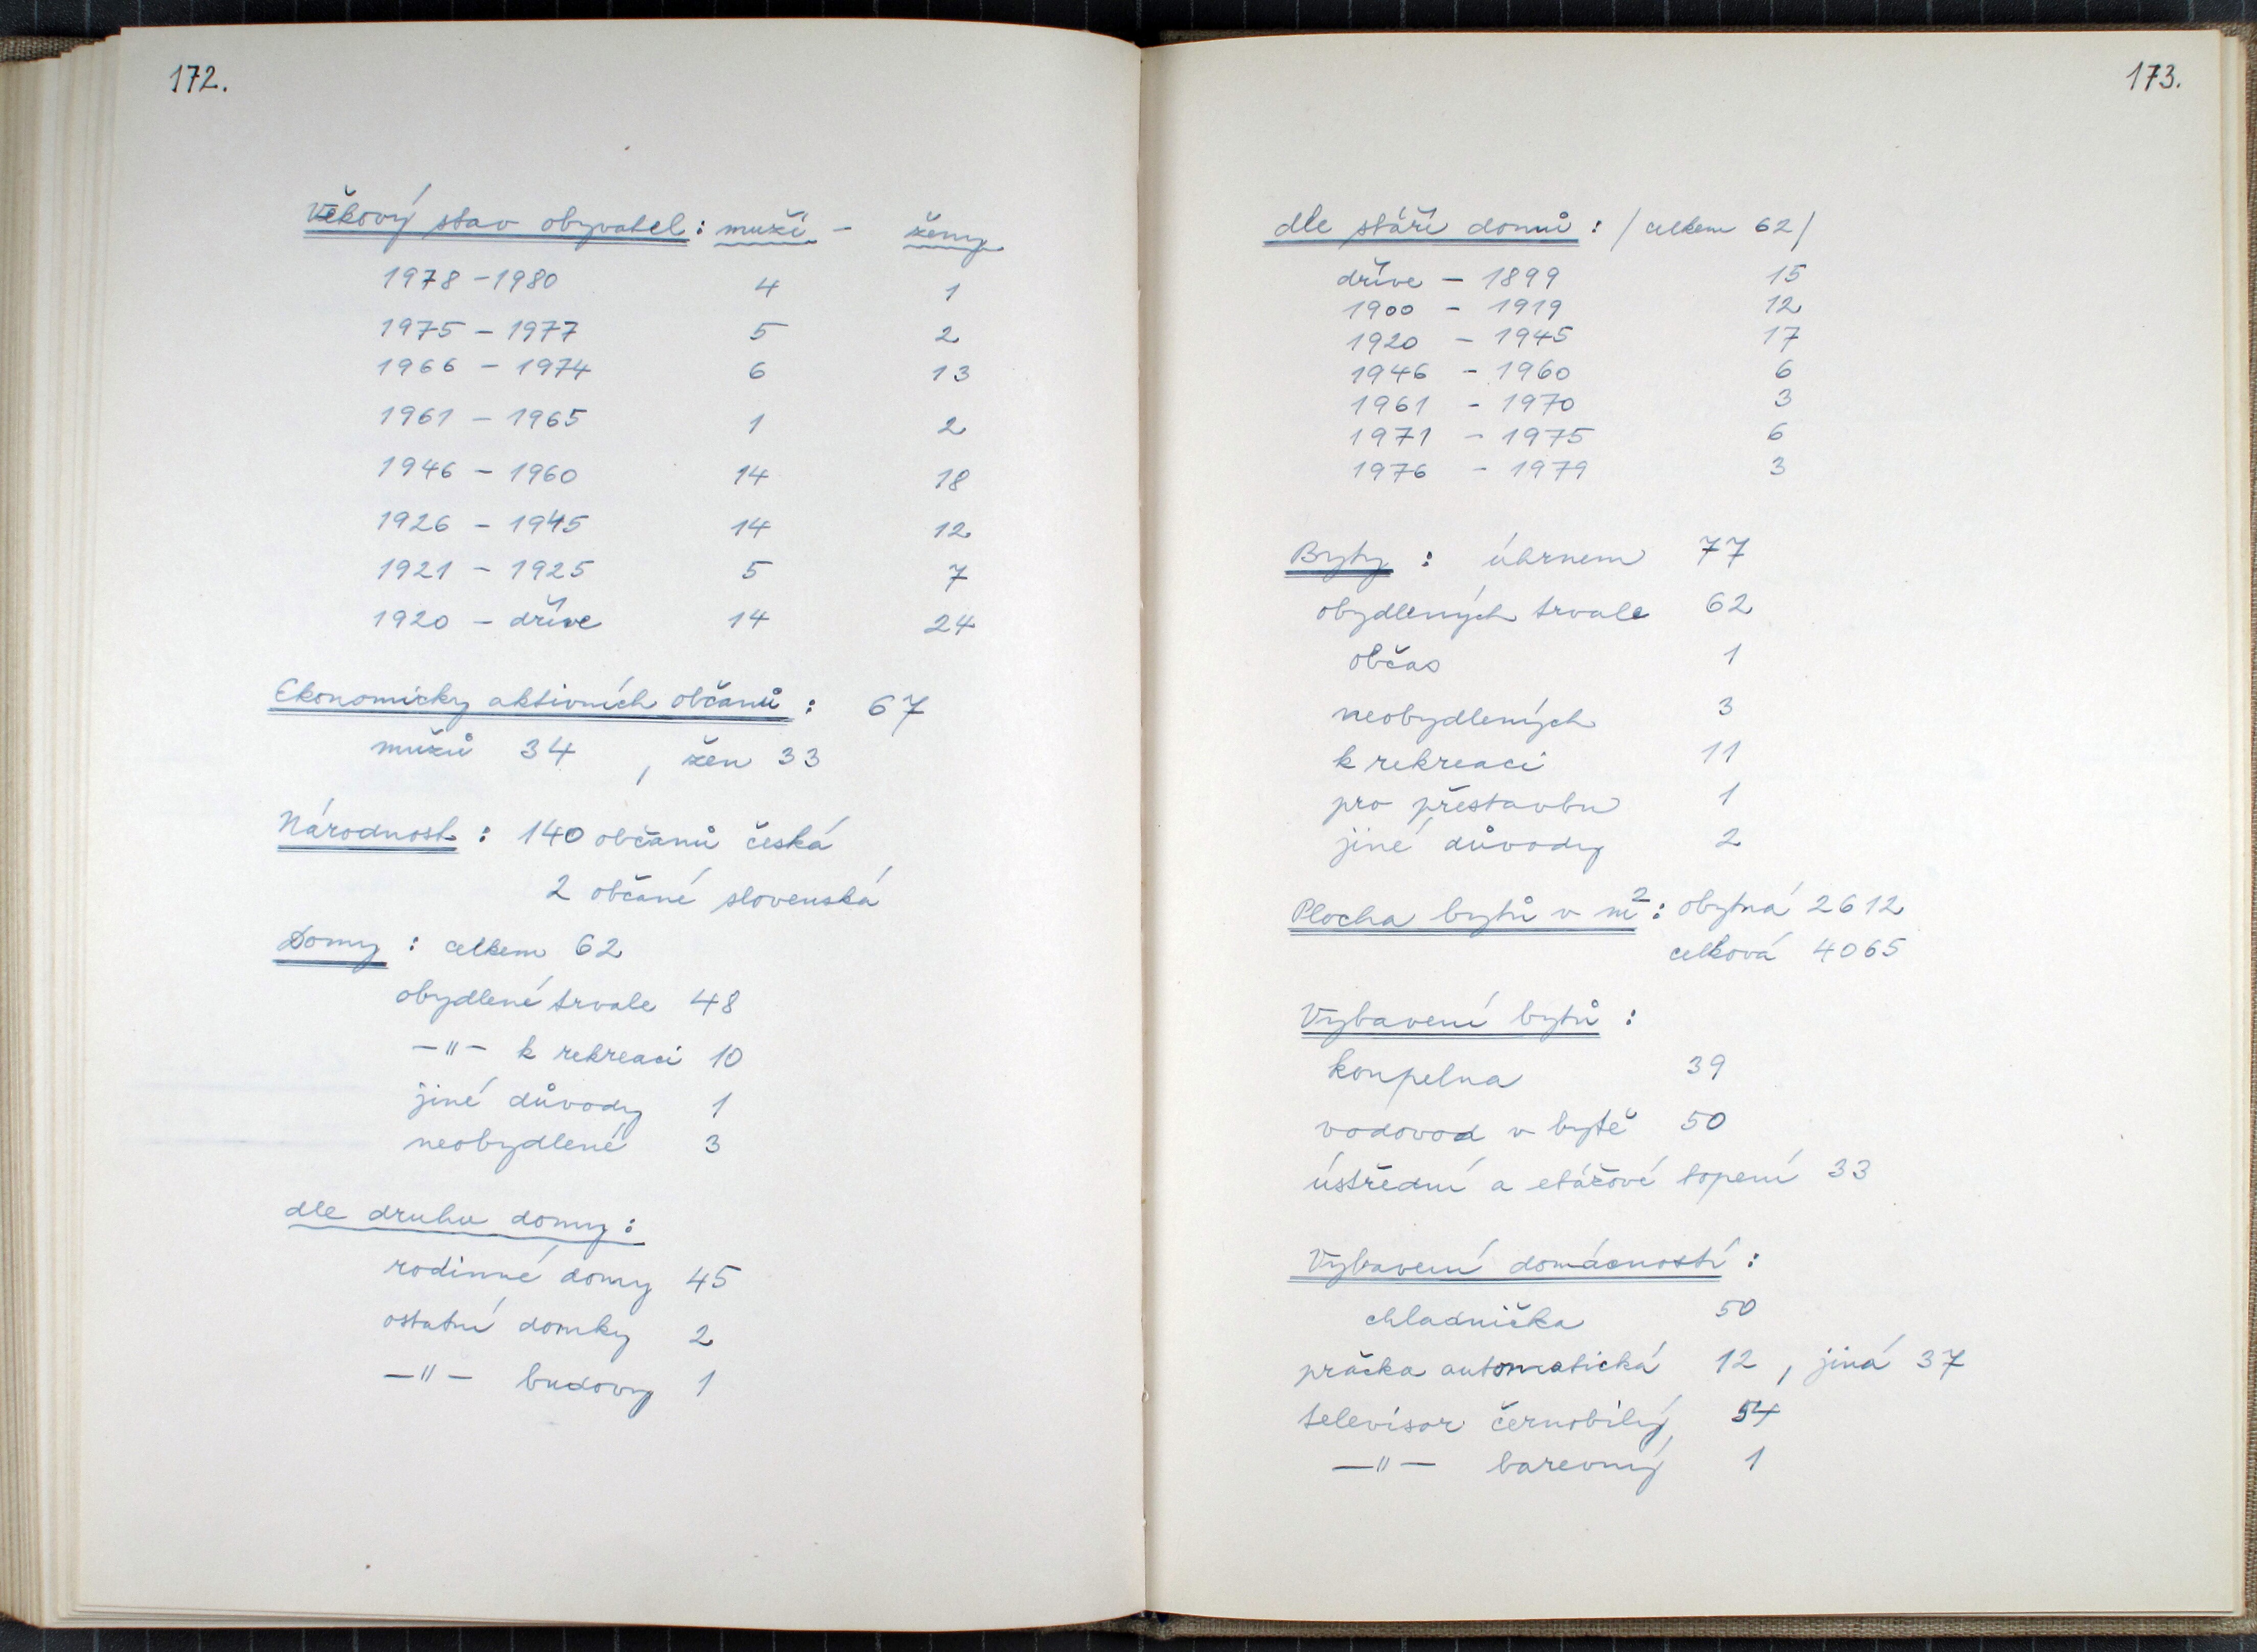 172.
Věkový stav obyvatel: muži - ženy
1978 - 1980 4 1
1975 - 1977 5 2
1966 - 1974 6 13
1961 - 1965 1 2
1946 - 1960 14 18
1926 - 1945 14 12
1921 - 1925 5 7
1920 - dříve 14 24
Ekonomicky aktivních občanů: 67
mužů 34, žen 33
Národnost: 140 občanů česká
2 občané slovenská
Domy: celkem 62
obydlené trvale 48
-"- k rekreaci 10
jiné důvody 1
neobydlené 3
dle druhu domy:
rodinné domy 45
ostatní domky 2
-"- budovy 1
173.
dle stáří domů: /celkem 62/
dříve - 1899 15
1900 - 1919 12
1920 - 1945 17
1946 - 1960 6
1961 - 1970 3
1971 - 1975 6
1976 - 1979 3
Byty: úhrnem 77
obydlených trvale 62
občas 1
neobydlených 3
k rekreaci 11
pro přestavbu 1
jiné důvody 2
Plocha bytů v m²: obytná 2612
celková 4065
Vybavení bytů:
koupelna 39
vodovod v bytě 50
ústřední a etážové topení 33
Vybavení domácností:
chladnička 50
pračka automatická 12, jiná 37
televisor černobílý 54
-"- barevný 1